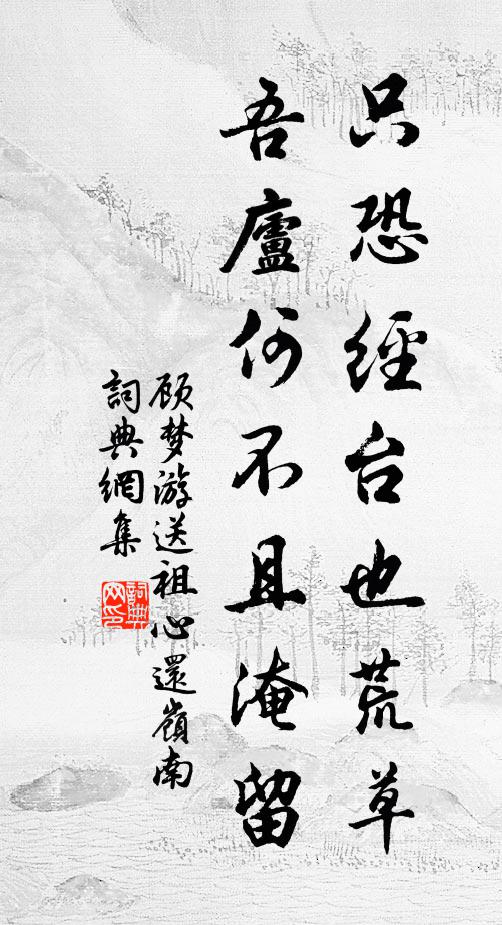 只恐經台也荒草
吾廬何不且淹留
顾梦游送祖心還嶺南
詞典網集
詞典網印